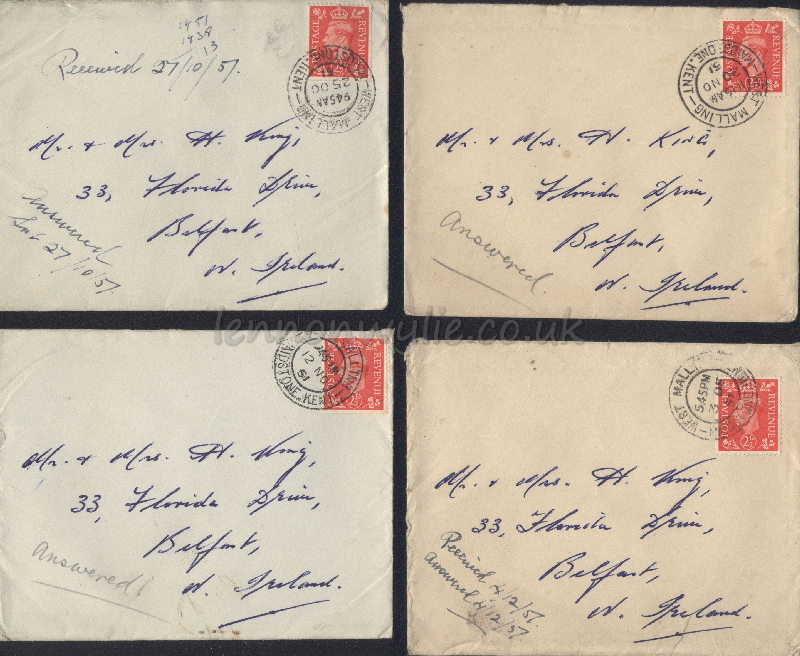 1951
1938
13
Received 27/10/51.
POSTAGE REVENUE
WEST MALLING
MAIDSTONE. KENT
945AM
25 OC
Mr. & Mrs. H. King,
33, Florida Drive,
Belfast,
N. Ireland.
Answered
27/10/51.
POSTAGE REVENUE
WEST MALLING
MAIDSTONE. KENT
NO
51
Mr. & Mrs. H. King,
33, Florida Drive,
Belfast,
N. Ireland.
Answered.
lennonwylie.co.uk
REVENUE
2½
MAIDSTONE. KENT
12 NO
51
Mr. & Mrs. H. King,
33, Florida Drive,
Belfast,
N. Ireland.
Answered!
POSTAGE REVENUE
2½
WEST MALLING
5.45PM
Mr. & Mrs. H. King,
33, Florida Drive,
Belfast,
N. Ireland.
Received 4/12/51.
Answered 4/12/51.